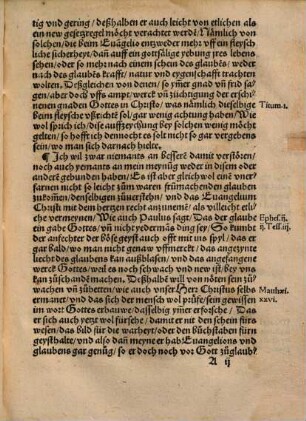 tig vnd gering / deßhalben er auch leicht von etlichen als
ein new gesetzregel möcht verachtet werdē / Nämlich von
solchen / die beim Euāgelio entzweder mehr vff ein fleysch
liche sicherheyt / dañ auff ein gottsälige yebung jres lebens
sehen / oder so mehr nach einem schein des glaubēs / weder
nach des glaubēs krafft / natur vnd eygenschafft trachten
wolten. Deßgleichen von denen / so ymer gnad vñ fride
sagen / aber doch offs ampt / werck vñ züchtigung der erschi-
nenen gnaden Gottes in Christo / was nämlich dieselbige
beim fleysche vßricht sol / gar wenig achtung haben / Wie
wol sprich ich / dise aufferzyehung bey solchen wenig möcht
gelten / so hoff ich dennocht es solt nicht so gar vergebens
sein / wo man sich darnach hielte.
¶ Jch wil zwar niemants an besserē damit verstossen /
noch auch yemants an mein meynung weder in disem oder
anderē gebunden haben / Es ist aber gleichwol eine vner-
farnen nicht so leicht zum waren früm̄achenden glauben
zukom̄en / denselbigen züuersthen / vnd das Euangelium
Christi mit dem herzen recht anzunemē / als villeicht etli-
che vermeynen / Wie auch Paulus sagt / Das der glaube
ein gabe Gottes / vñ nicht yedermās ding sey / So kumbt
der anfechter der böse geyst auch offt mit ins spyl / das er
gar bald / wo man nicht genaw vffmerckt / das anzeynte
liecht des glaubens kan außblasen / vnd das anfangend
werck Gottes / weil es noch schwach vnd new ist / bey vns
kan zuschanden machen. Deßhalb will von nöten sein zu-
wachen vñ zübetten / wie auch vnser Herr Christus selbs
ermanet / vnd das sich der mensch wol prüfe / sein gewissen
im wort Gottes erbauwe / dasselbig ymer erforsche / Das
er sich auch yetzt wol fürsehe / damit er nit den schein fürs
wesen / das bild für die warheyt / oder den büchstaben fürn
geysthalt / vnd also dañ meyne er hab Euangelions vnd
glaubens gar genüg / so er doch noch vor Gott züglaub-
A ij
Titum.i.
Ephes.ij.
ij.Tess.iij.
Matthæi.
xxvi.